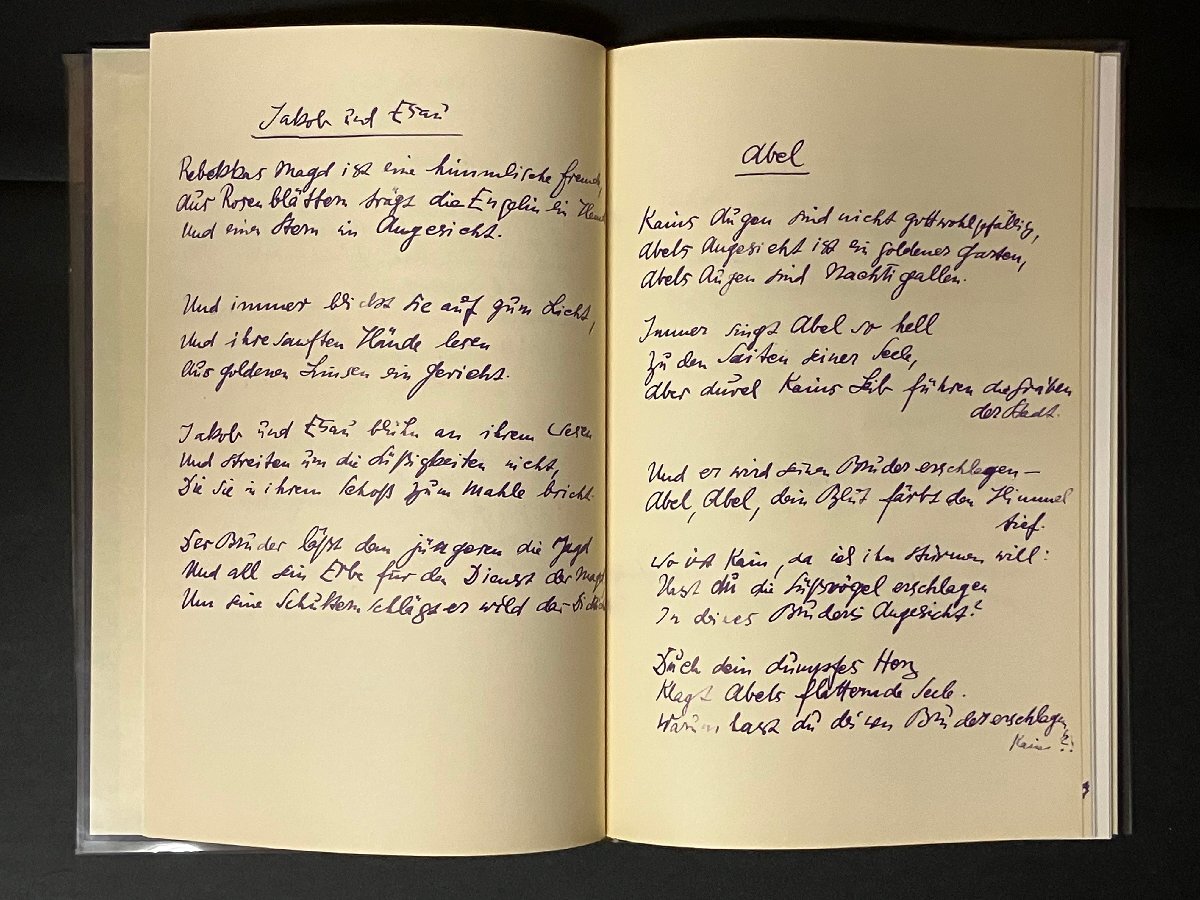 Jakob und Esau
Rebekkas Magd ist eine himmlische Fremde,
Aus Rosenblättern trägt die Engelin ein
Und einen Stern im Angesicht.
Und immer blickt sie auf zum Licht,
Und ihre sanften Hände lesen
Aus goldenen Linsen ein Gericht.
Jakob und Esau blühn an ihrem Wesen
Und streiten um die Süßigkeiten nicht,
Die sie in ihrem Schoß zum Mahle bricht.
Der Bruder läßt dem jüngeren die Jagd
Und all sein Erbe für den Dienst der Magd
Um seine Schultern schlägt er wild das
Abel
Kains Augen sind nicht gottwohlgefällig,
Abels Angesicht ist ein goldener Garten,
Abels Augen sind Nachtigallen.
Immer singt Abel so hell
Zu den Saiten seiner Seele,
Aber durch Kains Leib führen die Gräben
der Stadt.
Und er wird seinen Bruder erschlagen –
Abel, Abel, dein Blut färbt den Himmel
tief.
Wo ist Kain, da ich ihn stürmen will:
Hast du die Süßvögel erschlagen
In deines Bruders Angesicht?
Duch dein dumpfes Herz
Klagt Abels flatternde Seele.
Warum hast du deinen Bruder erschlagen
Kain?!